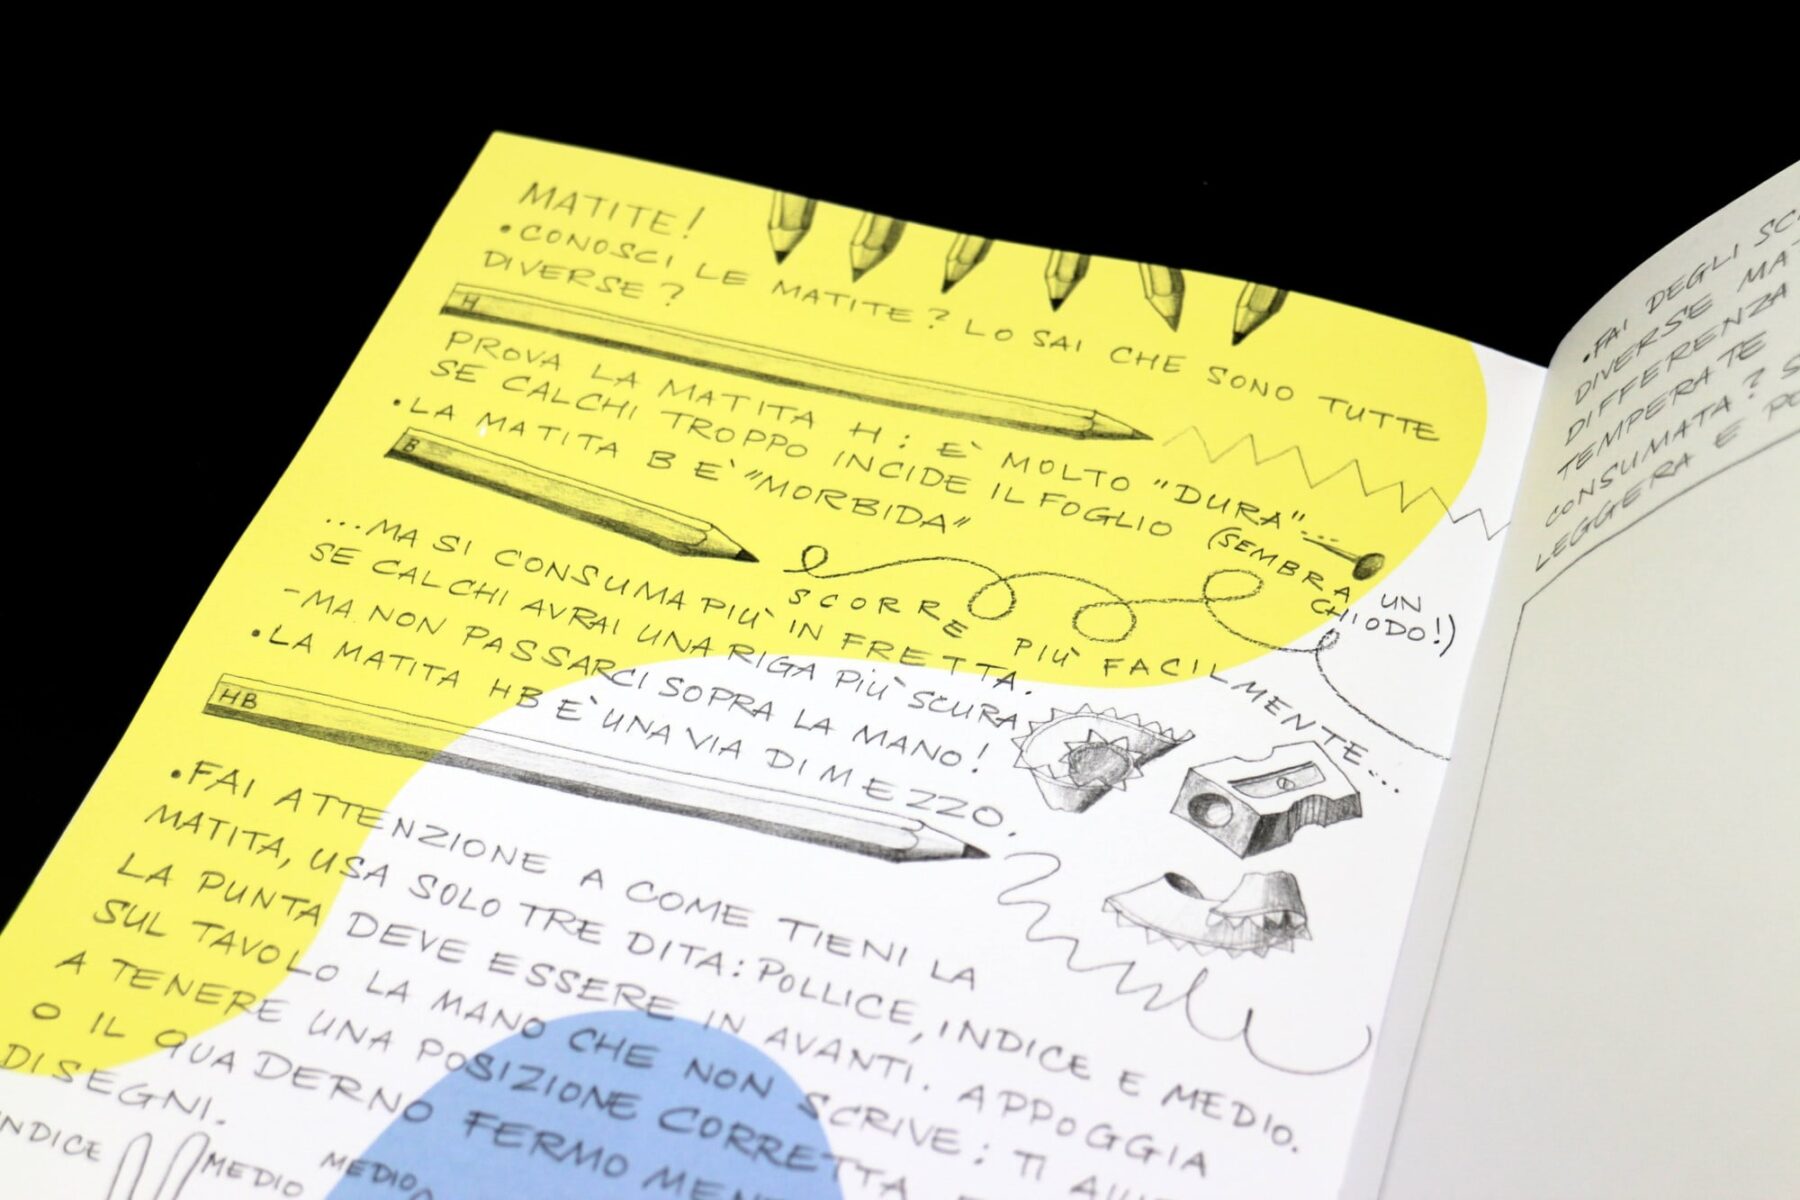 MATITE!
•CONOSCI LE MATITE? LO SAI CHE SONO TUTTE
DIVERSE?
H
PROVA LA MATITA H: E` MOLTO "DURA"...
SE CALCHI TROPPO INCIDE IL FOGLIO (SEMBRA UN
CHIODO!)
•LA MATITA B E` "MORBIDA"
B
SCORRE PIU` FACILMENTE...
...MA SI CONSUMA PIU` IN FRETTA.
SE CALCHI AVRAI UNA RIGA PIU` SCURA
-MA NON PASSARCI SOPRA LA MANO!
•LA MATITA HB E` UNA VIA DI MEZZO.
HB
•FAI ATTENZIONE A COME TIENI LA
MATITA, USA SOLO TRE DITA: POLLICE, INDICE E MEDIO.
LA PUNTA DEVE ESSERE IN AVANTI. APPOGGIA
SUL TAVOLO LA MANO CHE NON SCRIVE: TI
A TENERE UNA POSIZIONE CORRETTA
O IL QUADERNO FERMO
DISEGNI.
INDICE
MEDIO
MEDIO
•FAI DEGLI
DIVERSE
DIFFERENZA
TEMPERATE
CONSUMATA?
LEGGERA E